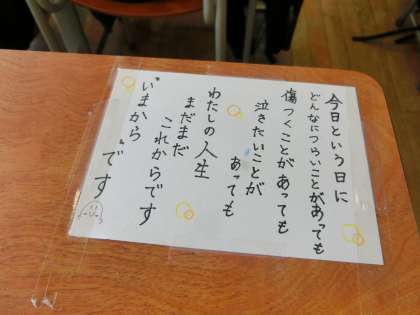 今日という日に
どんなにつらいことがあっても
傷つくことがあっても
泣きたいことが
あっても
わたしの人生
まだまだ
これからです
"いまから"です